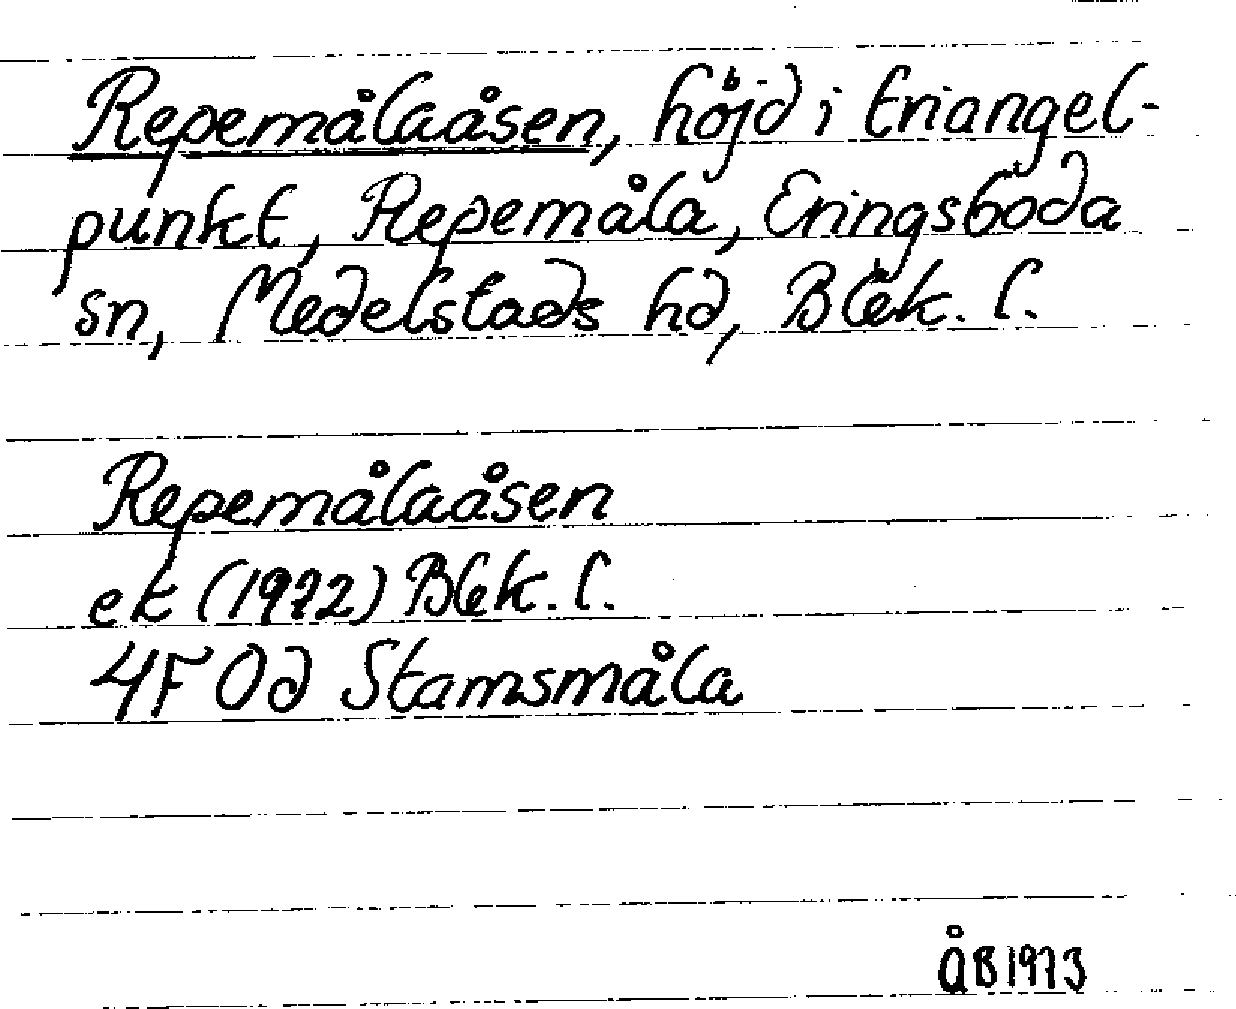 Repemålaåsen, höjd i triangel-
punkt, Repemåla, Eringsboda
sn, Medelstads hd, Blek. l.
Repemålaåsen
ek (1972) Blek. l.
4F 0d Stamsmåla
ÅB 1973